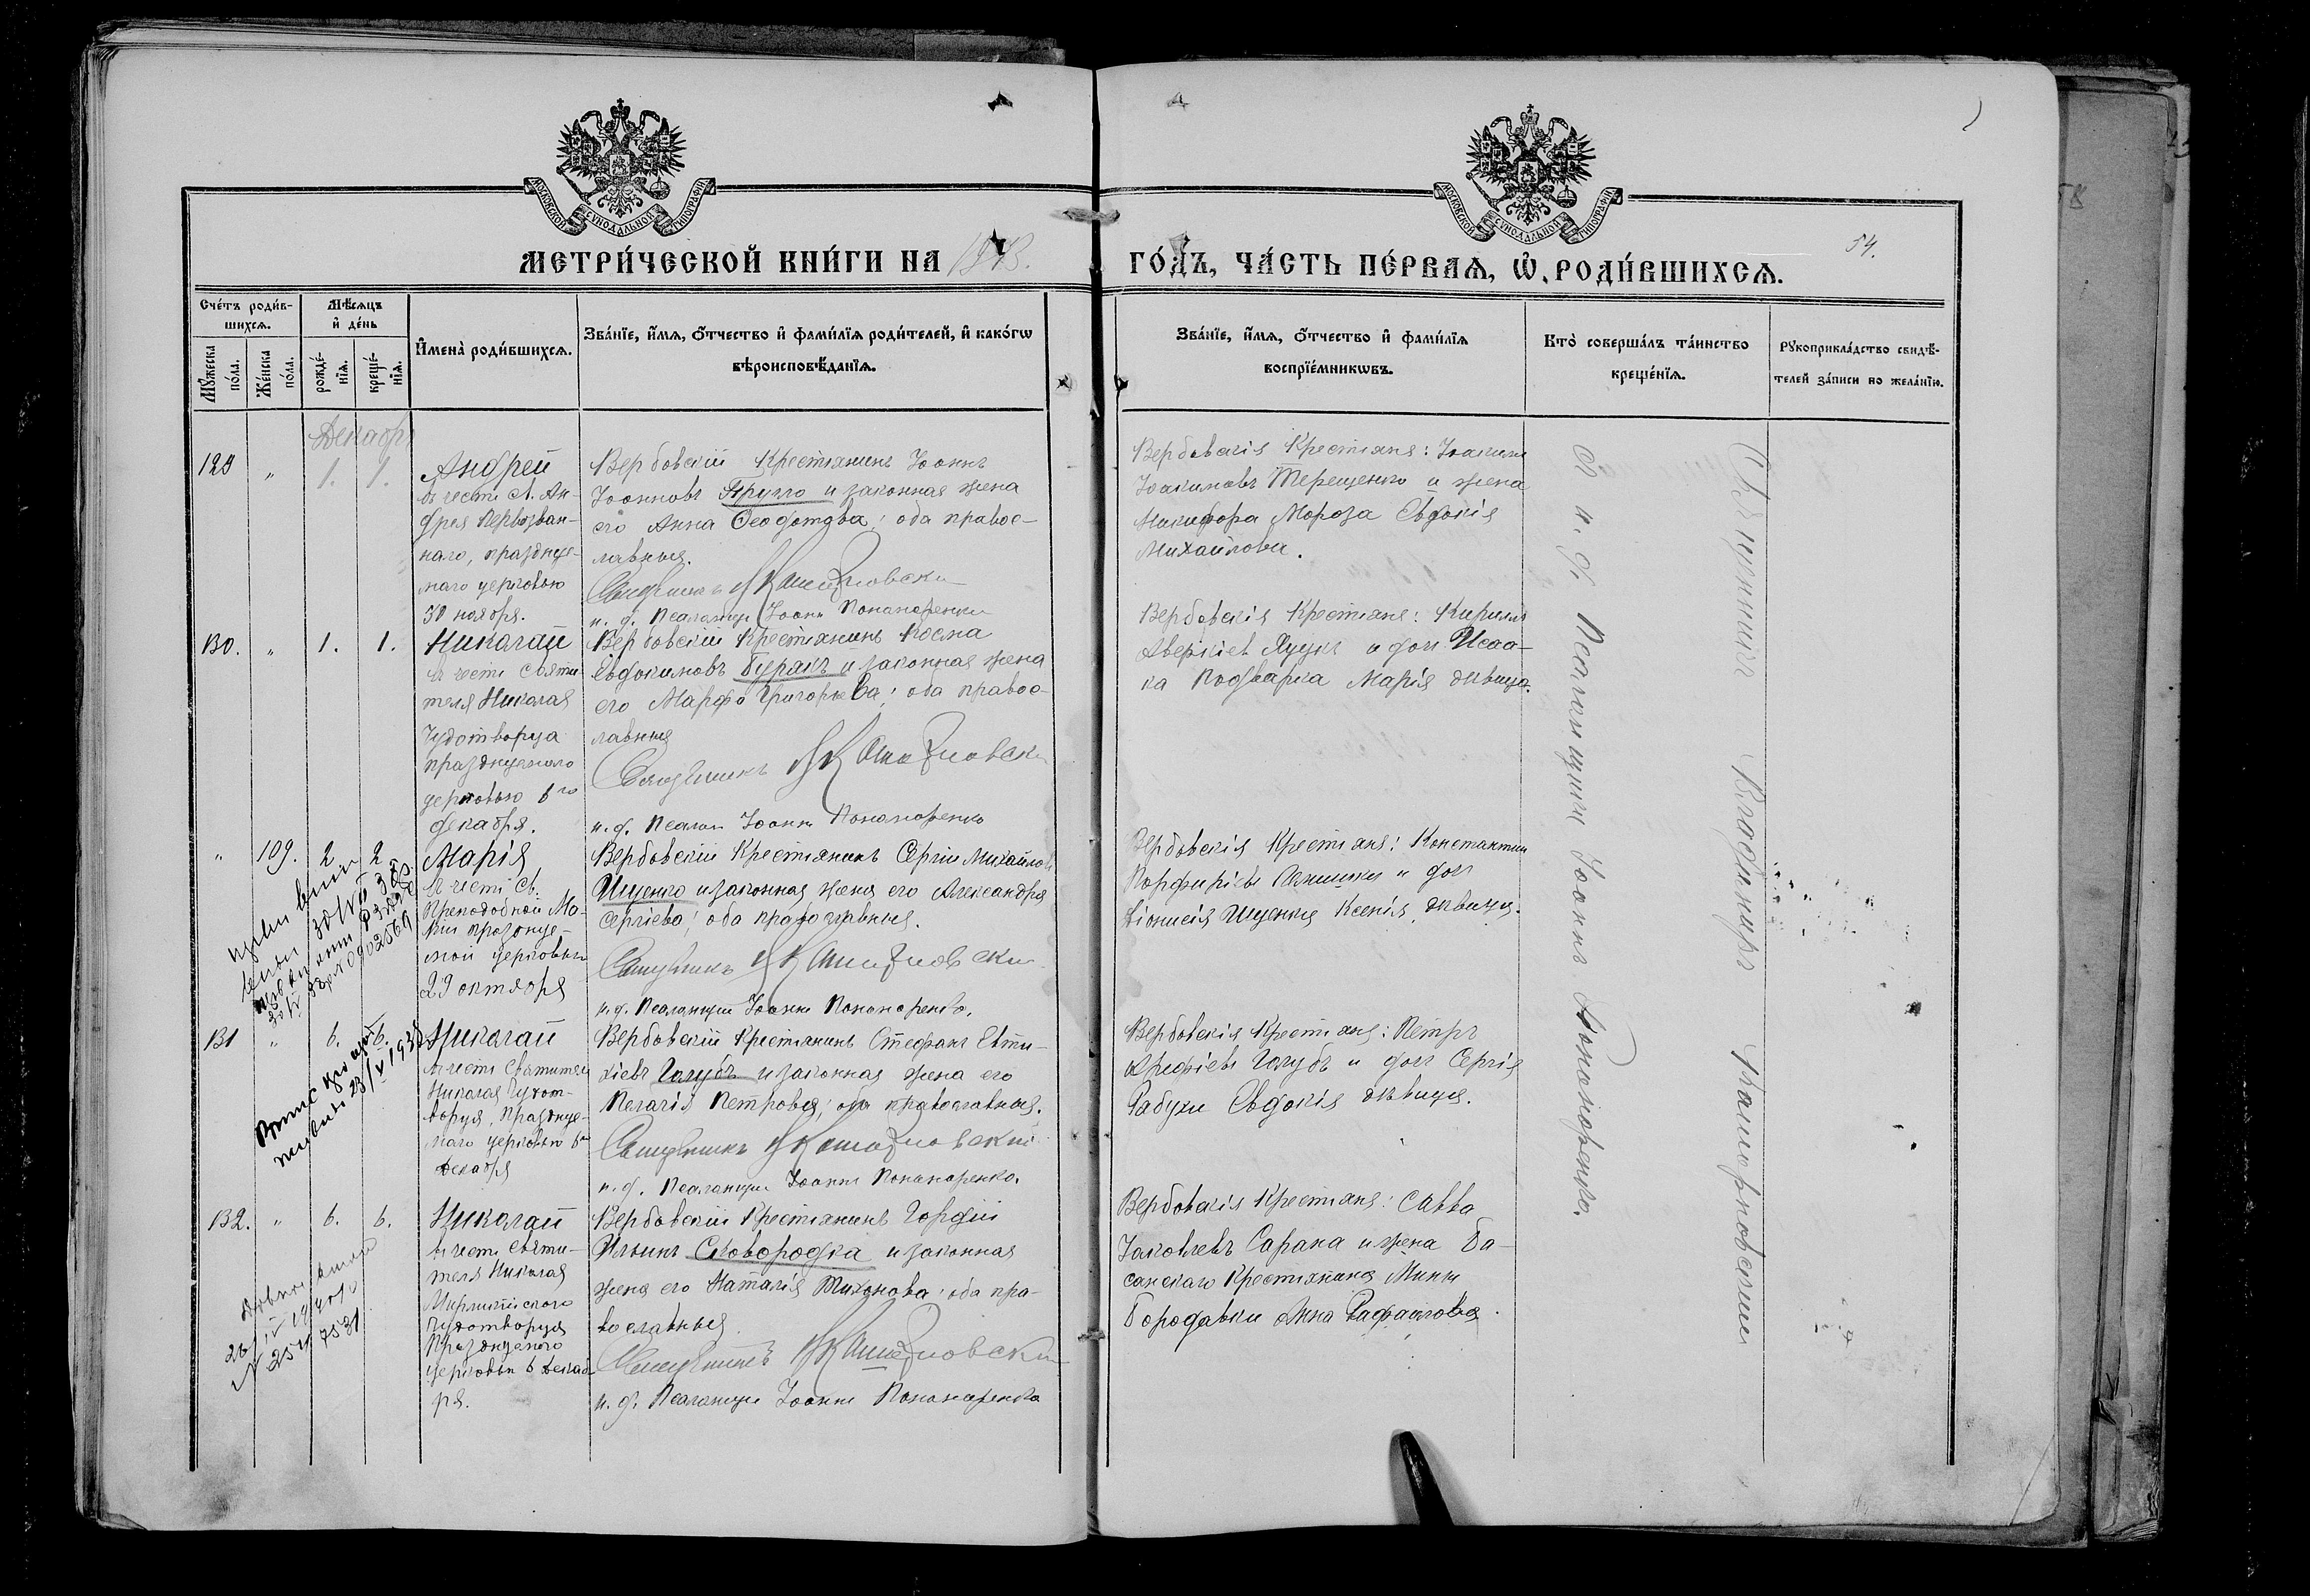 МОСКОВСКОЙ СѴНОДАЛЬНОЙ ТИПОГРАФІИ
МОСКОВСКОЙ СѴНОДАЛЬНОЙ ТИПОГРАФІИ
54.
МЕТРИ́ЧЕСКОЙ КНИ́ГИ НА
ГО́ДЪ, ЧА́СТЬ ПЕ́РВАѦ, Ѡ҆ РОДИ́ВШИХСѦ.
Сче́тъ роди́в-
шихсѧ.
Мѣ́сѧцъ
и҆ де́нь
Мꙋ́жеска
по́ла.
Же́нска
по́ла.
рожде́-
нїѧ.
креще́-
нїѧ.
И҆мена̀ роди́вшихсѧ.
Зва́нїе, и҆́мѧ, ѻ҆́тчество и҆ фами́лїѧ роди́телей, и҆ како́гѡ
вѣроисповѣ́данїѧ.
Зва́нїе, и҆́мѧ, ѻ҆́тчество и҆ фами́лїѧ
воспрїе́мникѡвъ.
Кто̀ соверша́лъ та́инство
креще́нїѧ.
Рꙋкоприкла́дство свидѣ́-
телей за́писи по жела́нїю.
Декабрь
129 " 1. 1.
Андрей
въ честь св. Ан-
дрея Первозван-
наго, празднуе-
маго церковью
30 ноября.
Вербовскій Крестьянинъ Іоаннъ
Іоанновъ и законная жена
его Анна Ѳеодотова; оба правос-
лавныя.
Священникъ
и. д. Псаломщ Іоаннъ Пономаренко
Вербовскія Крестьяне: Іоакимъ
Іоакимовъ Терещенко и жена
Никифора Мороза Евдокія
Михайлова.
130. " 1. 1.
Николай
въ честь Святи-
теля Николая
Чудотворца
празднуемаго
церковью 6го
декабря.
Вербовскій Крестьянинъ Косма
Евдокимовъ Бурякъ и законная жена
его Марфа Григорьева; оба правос-
лавныя
Священникъ
и. д. Псалом Іоаннъ Пономаренко
Вербовскія Крестьяне: Кириллъ
Аверкіевъ и доч Исаа-
ка Подварка Марія дѣвица.
" 109. 2. 2.
Марія
въ честь св.
Преподобной Ма-
ріи празднуе-
мой церковью
29 октября
Вербовскій Крестьянинъ Сергій Михайловъ
Ищенко и законная жена его Александра
Сергіева; оба православныя.
Священникъ
и. д. Псаломщи Іоаннъ Пономаренко.
Вербовскія Крестьяне: Константинъ
Порфиріевъ и доч
Діонисія Ищенка Ксенія, дѣвица.
131 " 6. 6.
Николай
въ честь Святителя
Николая Чудот-
ворца, празднуе-
маго церковью 6го
декабря
Вербовскій Крестьянинъ Стефанъ Евти-
хіевъ Голубъ и законная жена его
Пелагія Петрова; оба православныя.
Священникъ
и. д. Псаломщи Іоаннъ Пономаренко.
Вербовскія Крестьяне: Петръ
Голубъ и доч Сергія
Рабухи Евдокія дѣвица.
23/V 1938
132. " 6. 6.
Николай
въ честь Святи-
теля Николая
Мирликійскаго
Чудотворца
празднуемаго
церковью 6 декаб
ря.
Вербовскій Крестьянинъ Гордій
Ильинъ Сковородка и законная
жена его Наталія Тихонова; оба пра-
вославныя.
Священникъ
и. д. Псаломщи Іоаннъ Пономаренко
Вербовскія Крестьяне: Савва
Іаковлевъ Сарана и жена Ба-
санскаго Крестьянина Мины
Бородавки Анна Рафаилова.
Священникъ Владиміръ
и. д. Псаломщикъ Іоаннъ Пономаренко.